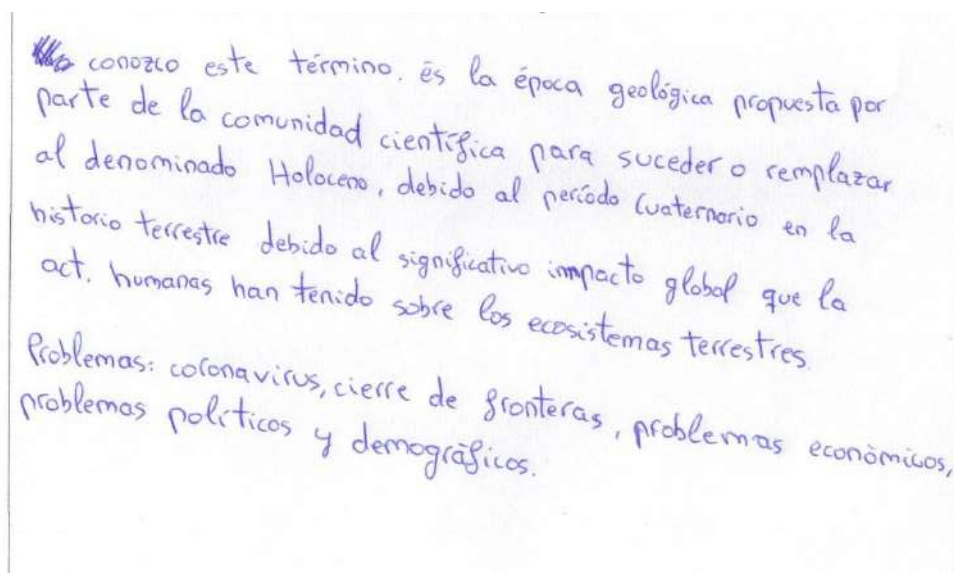 conozco este término. és la época geológica propuesta por
parte de la comunidad científica para suceder o remplazar
al denominado Holoceno, debido al período Cuaternario en la
historio terrestre debido al significativo impacto global que la
act. humanas han tenido sobre los ecosistemas terrestres.
Problemas: coronavirus, cierre de fronteras, problemas económicos,
problemas políticos y demográficos.